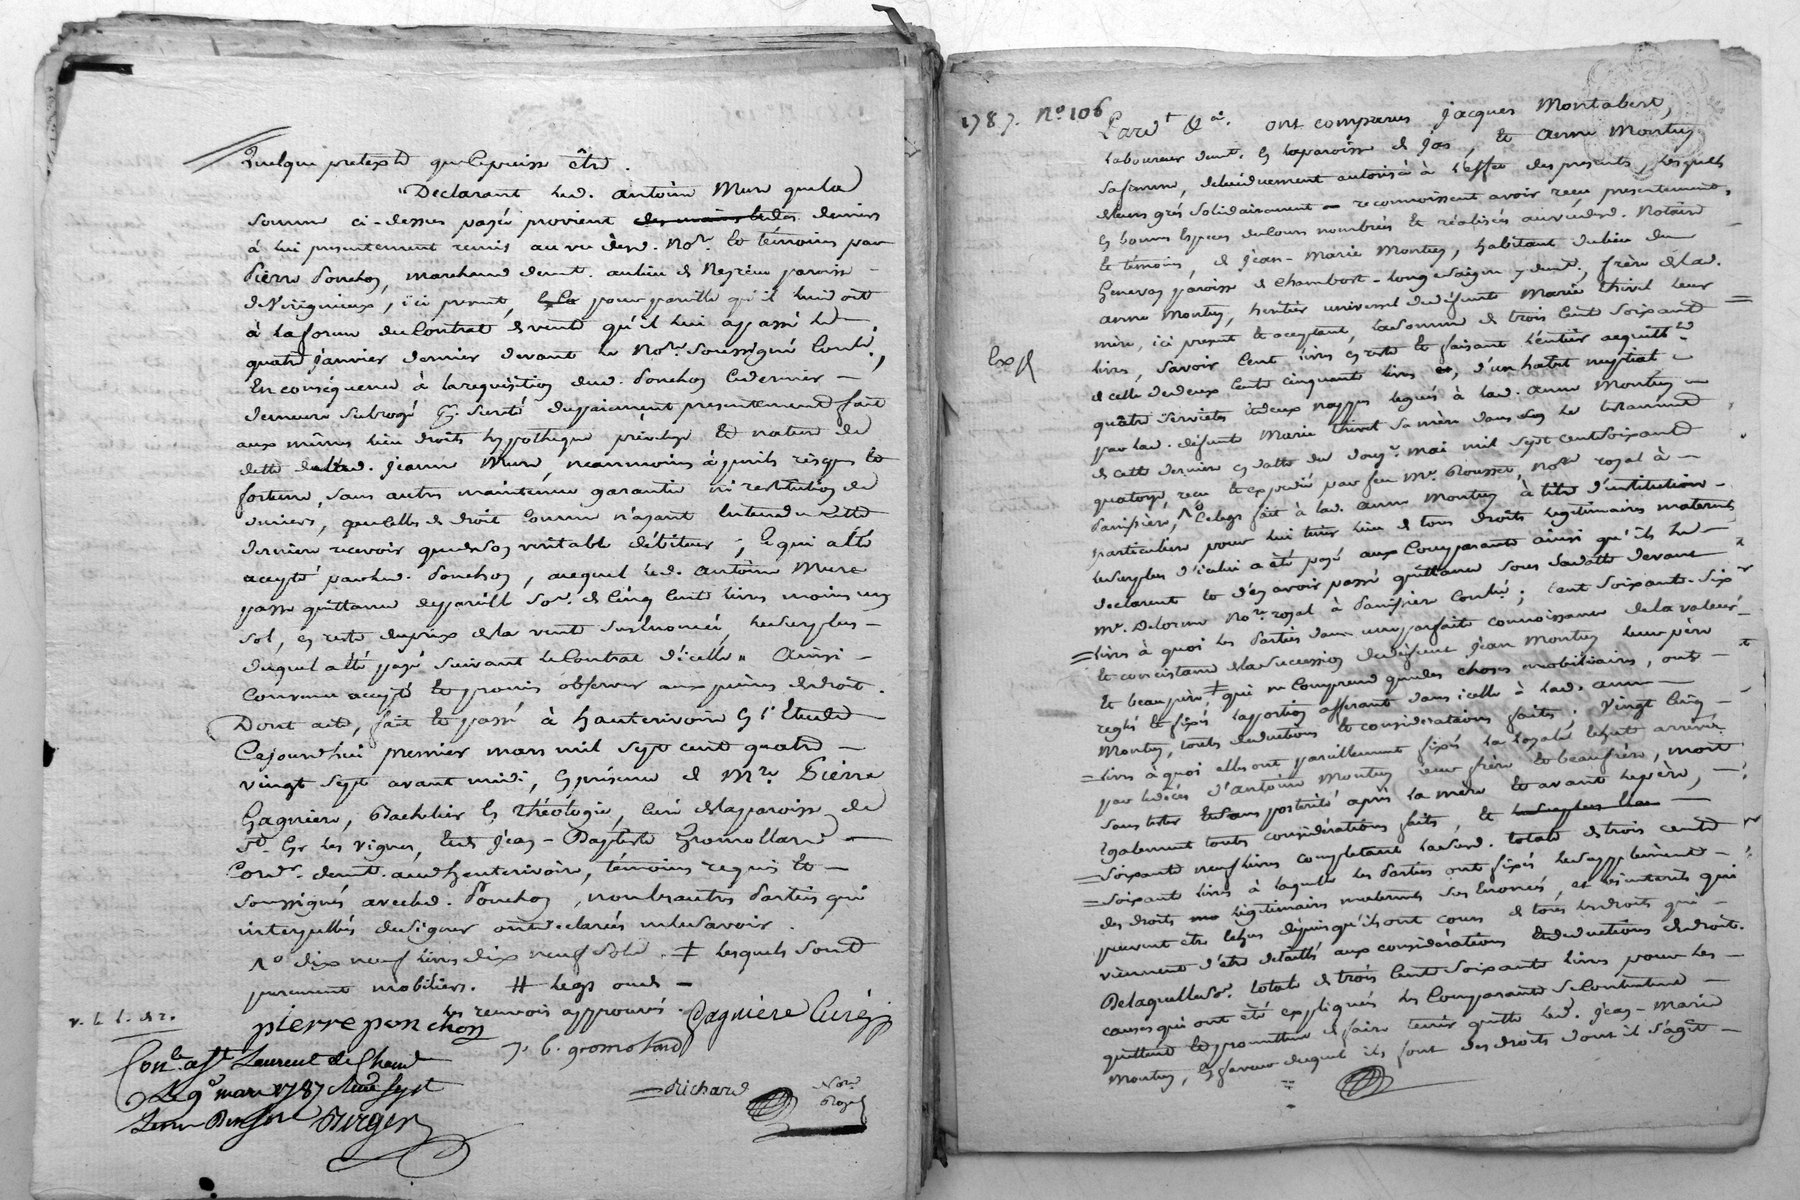 Quelque pretexte que ce puisse être.
Declarant led. antoine Mure que la
somme ci-dessus payée provient des mains deniers
à lui presentement remis au vu desd. Nore. et témoins par
Pierre Ponchon, marchand demt. au lieu de paroisse
de Virignieux, ici present, pour pareille qu'il lui doit
à la forme du Contrat de vente qu'il lui a passé le
quatre janvier dernier devant le Nore. soussigné Controlé,
En conséquence à la requisition dud. Ponchon ce dernier
demeure subrogé pr. sureté du paiement presentement fait
aux mêmes lieu droits hypothèque privilege et nature de
dette de lad. jeanne Mure, neanmoins à perils risques et
fortune, sans autre maintenue garantie ni restitution de
deniers, que celles de droit comme n'ayant entendu cette
derniere recevoir que de son veritable débiteur; ce qui a été
accepté par led. Ponchon, auquel led. antoine Mure
passe quittance de pareille some. de Cinq Cent livres moins un
sol, en reste du prix de la vente sus énoncée, le surplus
duquel a été payé suivant le Contrat d'icelle. Ainsi
convenu accepté et promis observer aux peines de droit.
Dont acte, fait et passé à hauterivoire en l'Etude
Cejourd'hui premier mars mil sept cent quatre
vingt sept avant midi, en présence de Mre. Pierre
Gagnière, Bachelier en théologie, Curé de la paroisse de
St. Cyr les vignes, et de jean-Baptiste Gromollard
Cordr. demt. aud. hauterivoire, témoins requis et
soussignés avec led. Ponchon, non les autres Parties qui
interpellées de signer ont déclarés ne le savoir.
1º dix neuf livres dix neuf sols. ‡ lesquels sont
purement mobiliers. # legs
les renvois approuvés. Gagnière Curé
pierre ponchon
j. b. gromolard
Conlé. à St. Laurent de Chamt
Le 9e mars 1787 Reçu sept
livres dix sols Berger
Richard
Nore.
Royal
1787. No. 106
Pardt. &a. ont comparus jacques Montabert,
Laboureur demt. en la paroisse de Jas, et anne Montuy
sa femme, de lui duement autorisée à l'effet des presentes, lesquels
de leurs grés solidairement reconnoissent avoir reçu presentement,
en bonnes Especes de cours nombrées et réalisées au vu desd. Notaire
et témoins, de jean-Marie Montuy, habitant du lieu du
Genevay paroisse de Chambost-longessaigne y demt., frère de lad.
anne Montuy, heritier universel de défunte Marie thivel leur
mère, ici present et acceptant, la somme de trois cent soixante
livres, savoir Cent livres en reste et faisant l'entier acquittmt.
de celle de deux cents cinquante livres, d'un habit nuptial
quatre serviettes et deux nappes legués à lad. anne Montuy
par lad. défunte Marie thivel sa mère dans son testament
de cette derniere en datte du douze. mai mil sept cent soixante
quatorze reçu et expedié par feu Me. Rousset, Nore. royal à
Panissière, Ce legs fait à lad. anne Montuy à titre d'institution
particuliere pour lui tenir lieu de tous droits legitimaires maternels
le surplus d'icelui a été payé aux Comparants ainsi qu'ils le
declarent et d'en avoir passé quittance sous sa datte devant
Me. Delorme Nore. royal à Panissière Controlé; Cent soixante-six
livres à quoi les Parties dans une parfaite connoissance de la valeur
et consistance de la succession de défunt jean Montuy leur père
et beau père, ‡ qui ne comprend que des choses mobiliaires, ont
reglés et fixés la portion afferante dans icelle à lad. anne
Montuy, toutes deductions et considerations faites; vingt cinq
livres à quoi elles ont pareillement fixés la legale échute arrivée
par le décès d'antoine Montuy leur frère et beaufrère, mort
sans tester et sans posterité après la mère et avant le père,
également toutes considérations faites, et
soixante neuf livres completant lad. some. totale de trois cents
soixante livres à laquelle les Parties ont fixés le supplément
des droits legitimaires maternels sus énoncés, et les interets qui
peuvent etre échus depuis qu'ils ont cours de tous les droits qui
viennent d'être detaillés aux considérations et deductions de droit.
De laquelle some. totale de trois Cent soixante livres pour les
causes qui ont été expliquées les Comparants se contentent
quittent et promettent de faire tenir quitte led. jean-Marie
Montuy, en faveur duquel ils font des droits dont il s'agit